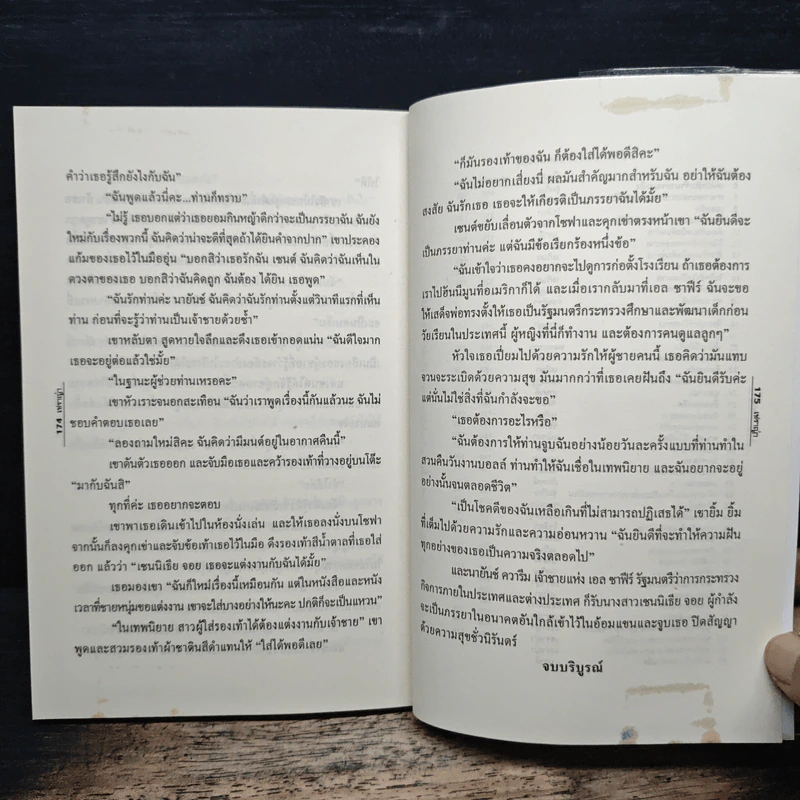 คำว่าเธอรู้สึกยังไงกับฉัน”
“ฉันพูดแล้วนี่คะ...ท่านก็ทราบ”
“ไม่รู้ เธอบอกแต่ว่าเธอยอมกินหญ้าดีกว่าจะเป็นภรรยาฉัน ฉันยัง
ใหม่กับเรื่องพวกนี้ ฉันคิดว่าน่าจะดีที่สุดถ้าได้ยินคำจากปาก” เขาประคอง
แก้มของเธอไว้ในมืออุ่น “บอกสิว่าเธอรักฉัน เซนต์ ฉันคิดว่าฉันเห็นใน
ดวงตาของเธอ บอกสิว่าฉันคิดถูก ฉันต้อง ได้ยิน เธอพูด”
“ฉันรักท่านค่ะ นายันซ์ ฉันคิดว่าฉันรักท่านตั้งแต่วินาทีแรกที่เห็น
ท่าน ก่อนที่จะรู้ว่าท่านเป็นเจ้าชายด้วยซ้ำ”
เขาหลับตา สูดหายใจลึกและดึงเธอเข้ากอดแน่น “ฉันดีใจมาก
เธอจะอยู่ต่อแล้วใช่มั้ย”
“ในฐานะผู้ช่วยท่านเหรอคะ”
เขาหัวเราะจนอกสะเทือน “ฉันว่าเราพูดเรื่องนี้กันแล้วนะ ฉันไม่
ชอบคำตอบเธอเลย”
“ลองถามใหม่สิคะ ฉันคิดว่ามีมนต์อยู่ในอากาศคืนนี้”
เขาดันตัวเธอออก และจับมือเธอและคว้ารองเท้าที่วางอยู่บนโต๊ะ
“มากับฉันสิ”
ทุกที่ค่ะ เธออยากจะตอบ
เขาพาเธอเดินเข้าไปในห้องนั่งเล่น และให้เธอลงนั่งบนโซฟา
จากนั้นก็ลงคุกเข่าและจับข้อเท้าเธอไว้ในมือ ดึงรองเท้าสีน้ำตาลที่เธอใส่
ออก แล้วว่า “เซนนิเธีย จอย เธอจะแต่งงานกับฉันได้มั้ย”
เธอมองเขา “ฉันก็ใหม่เรื่องนี้เหมือนกัน แต่ในหนังสือและหนัง
เวลาที่ชายหนุ่มขอแต่งงาน เขาจะใส่บางอย่างให้นะคะ ปกติก็จะเป็นแหวน”
“ในเทพนิยาย สาวผู้ใส่รองเท้าได้ต้องแต่งงานกับเจ้าชาย” เขา
พูดและสวมรองเท้าผ้าซาตินสีดำแทนให้ “ใส่ได้พอดีเลย”
174 เฟราญ่า
“ก็มันรองเท้าของฉัน ก็ต้องใส่ได้พอดีสิคะ”
“ฉันไม่อยากเสี่ยงนี่ ผลมันสำคัญมากสำหรับฉัน อย่าให้ฉันต้อง
สงสัย ฉันรักเธอ เธอจะให้เกียรติเป็นภรรยาฉันได้มั้ย”
เซนต์ขยับเลื่อนตัวจากโซฟาและคุกเข่าตรงหน้าเขา “ฉันยินดีจะ
เป็นภรรยาท่านค่ะ แต่ฉันมีข้อเรียกร้องหนึ่งข้อ”
“ฉันเข้าใจว่าเธอคงอยากจะไปดูการก่อตั้งโรงเรียน ถ้าเธอต้องการ
เราไปฮันนีมูนที่อเมริกาก็ได้ และเมื่อเรากลับมาที่เอล ซาฟีร์ ฉันจะขอ
ให้เสด็จพ่อทรงตั้งให้เธอเป็นรัฐมนตรีกระทรวงศึกษาและพัฒนาเด็กก่อน
วัยเรียนในประเทศนี้ ผู้หญิงที่นี่ก็ทำงาน และต้องการคนดูแลลูกๆ”
หัวใจเธอเปี่ยมไปด้วยความรักให้ผู้ชายคนนี้ เธอคิดว่ามันแทบ
จวนจะระเบิดด้วยความสุข มันมากกว่าที่เธอเคยฝันถึง “ฉันยินดีรับค่ะ
แต่นั่นไม่ใช่สิ่งที่ฉันกำลังจะขอ”
“เธอต้องการอะไรหรือ”
“ฉันต้องการให้ท่านจูบฉันอย่างน้อยวันละครั้งแบบที่ท่านทำใน
สวนคืนวันงานบอลล์ ท่านทำให้ฉันเชื่อในเทพนิยาย และฉันอยากจะอยู่
อย่างนั้นจนตลอดชีวิต”
“เป็นโชคดีของฉันเหลือเกินที่ไม่สามารถปฏิเสธได้” เขายิ้ม ยิ้ม
ที่เต็มไปด้วยความรักและความอ่อนหวาน “ฉันยินดีที่จะทำให้ความฝัน
ทุกอย่างของเธอเป็นความจริงตลอดไป”
และนายันซ์ ควารีม เจ้าชายแห่ง เอล ซาฟีร์ รัฐมนตรีว่าการกระทรวง
กิจการภายในประเทศและต่างประเทศ ก็รับนางสาวเซนนิเธีย จอย ผู้กำลัง
จะเป็นภรรยาในอนาคตอันใกล้เข้าไว้ในอ้อมแขนและจูบเธอ ปิดสัญญา
ด้วยความสุขชั่วนิรันดร์
จบบริบูรณ์
175 เฟราญ่า